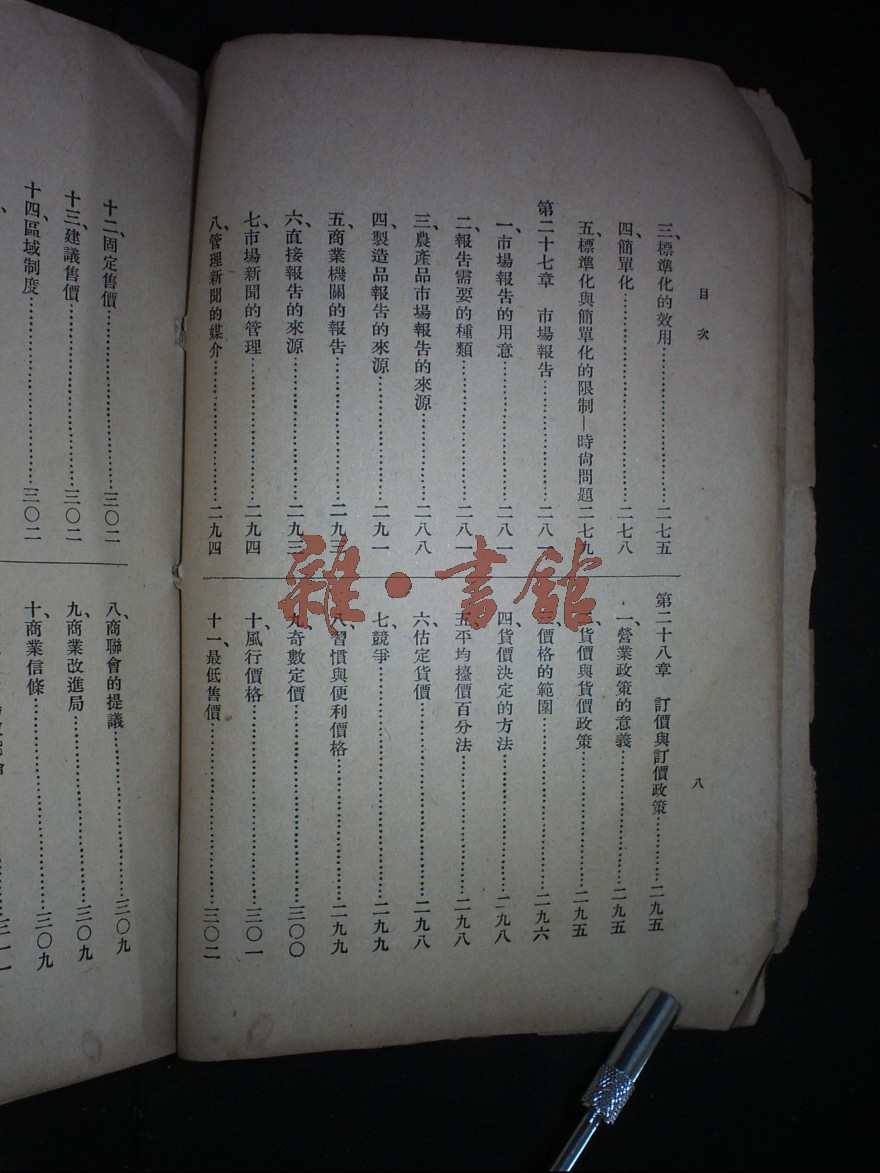 目次
八
三、標準化的效用……二七五
四、簡單化……二七八
五、標準化與簡單化的限制—時尙問題二七九
第二十七章 市場報告……二八一
一、市場報告的用意……二八一
二、報告需要的種類……二八一
三、農產品市場報告的來源……二八八
四、製造品報告的來源……二九一
五、商業機關的報告……二九三
六、直接報告的來源……二九三
七、市場新聞的管理……二九四
八、管理新聞的媒介……二九四
第二十八章 訂價與訂價政策……二九五
一、營業政策的意義……二九五
二、貨價與貨價政策……二九五
三、價格的範圍……二九六
四、貨價決定的方法……二九八
五、平均擡價百分法……二九八
六、估定貨價……二九八
七、競爭……二九九
八、習慣與便利價格……二九九
九、奇數定價……三〇〇
十、風行價格……三〇一
十一、最低售價……三〇二
十二、固定售價……三〇二
十三、建議售價……三〇二
十四、區域制度……三〇二
八、商聯會的提議……三〇九
九、商業改進局……三〇九
十、商業信條……三〇九
三一一
雜·書館